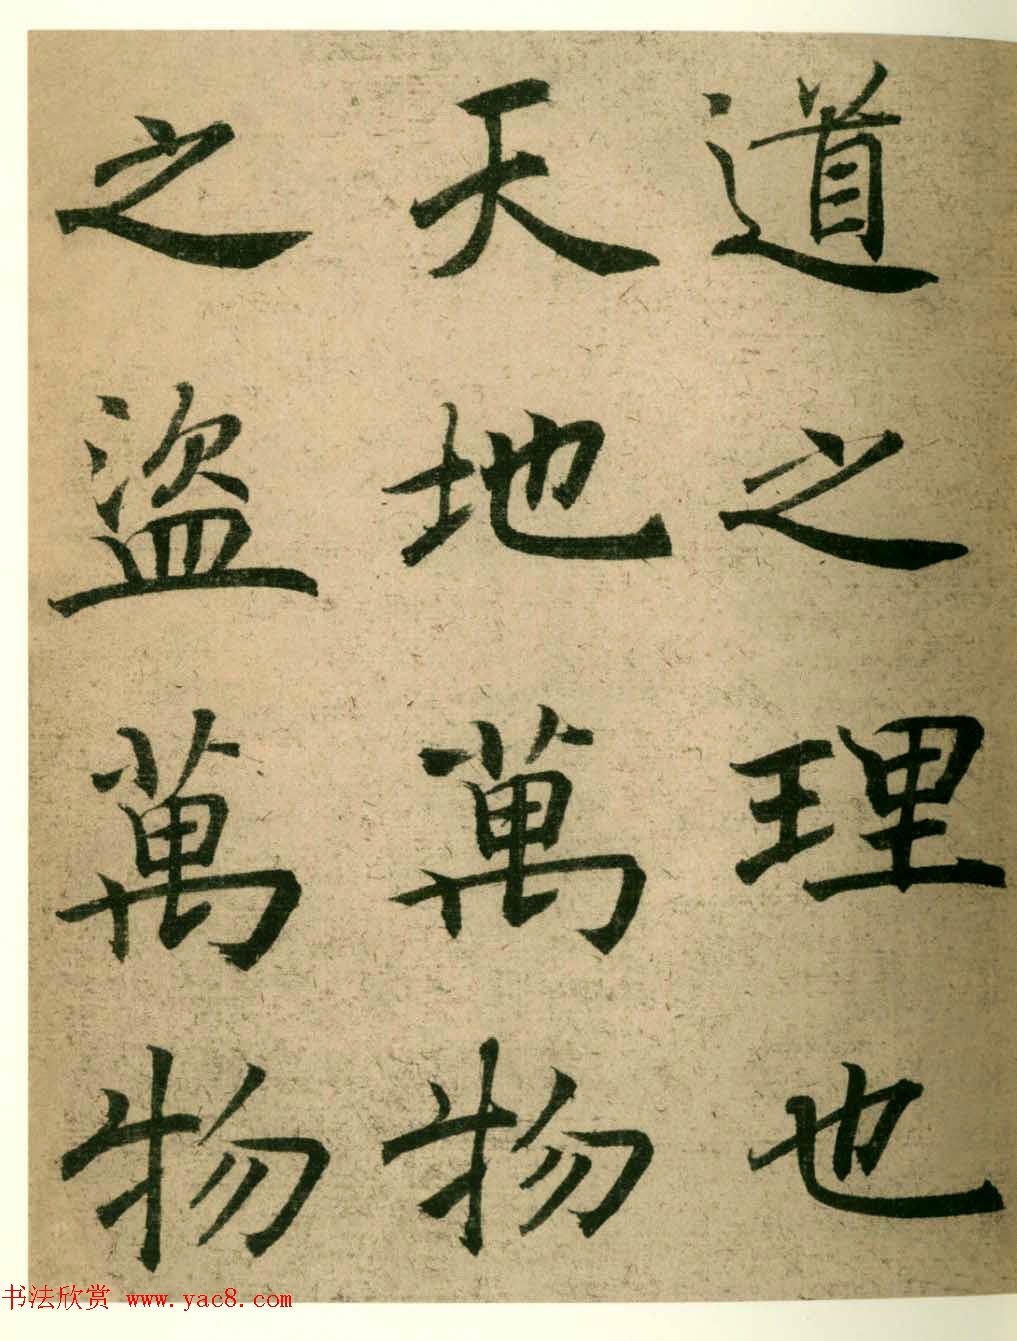 道之理也
天地萬物
之盜萬物
书法欣赏 www.yac8.com